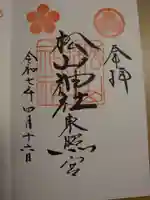 奉拝
松山神社東照宮
令和七年四月十六日